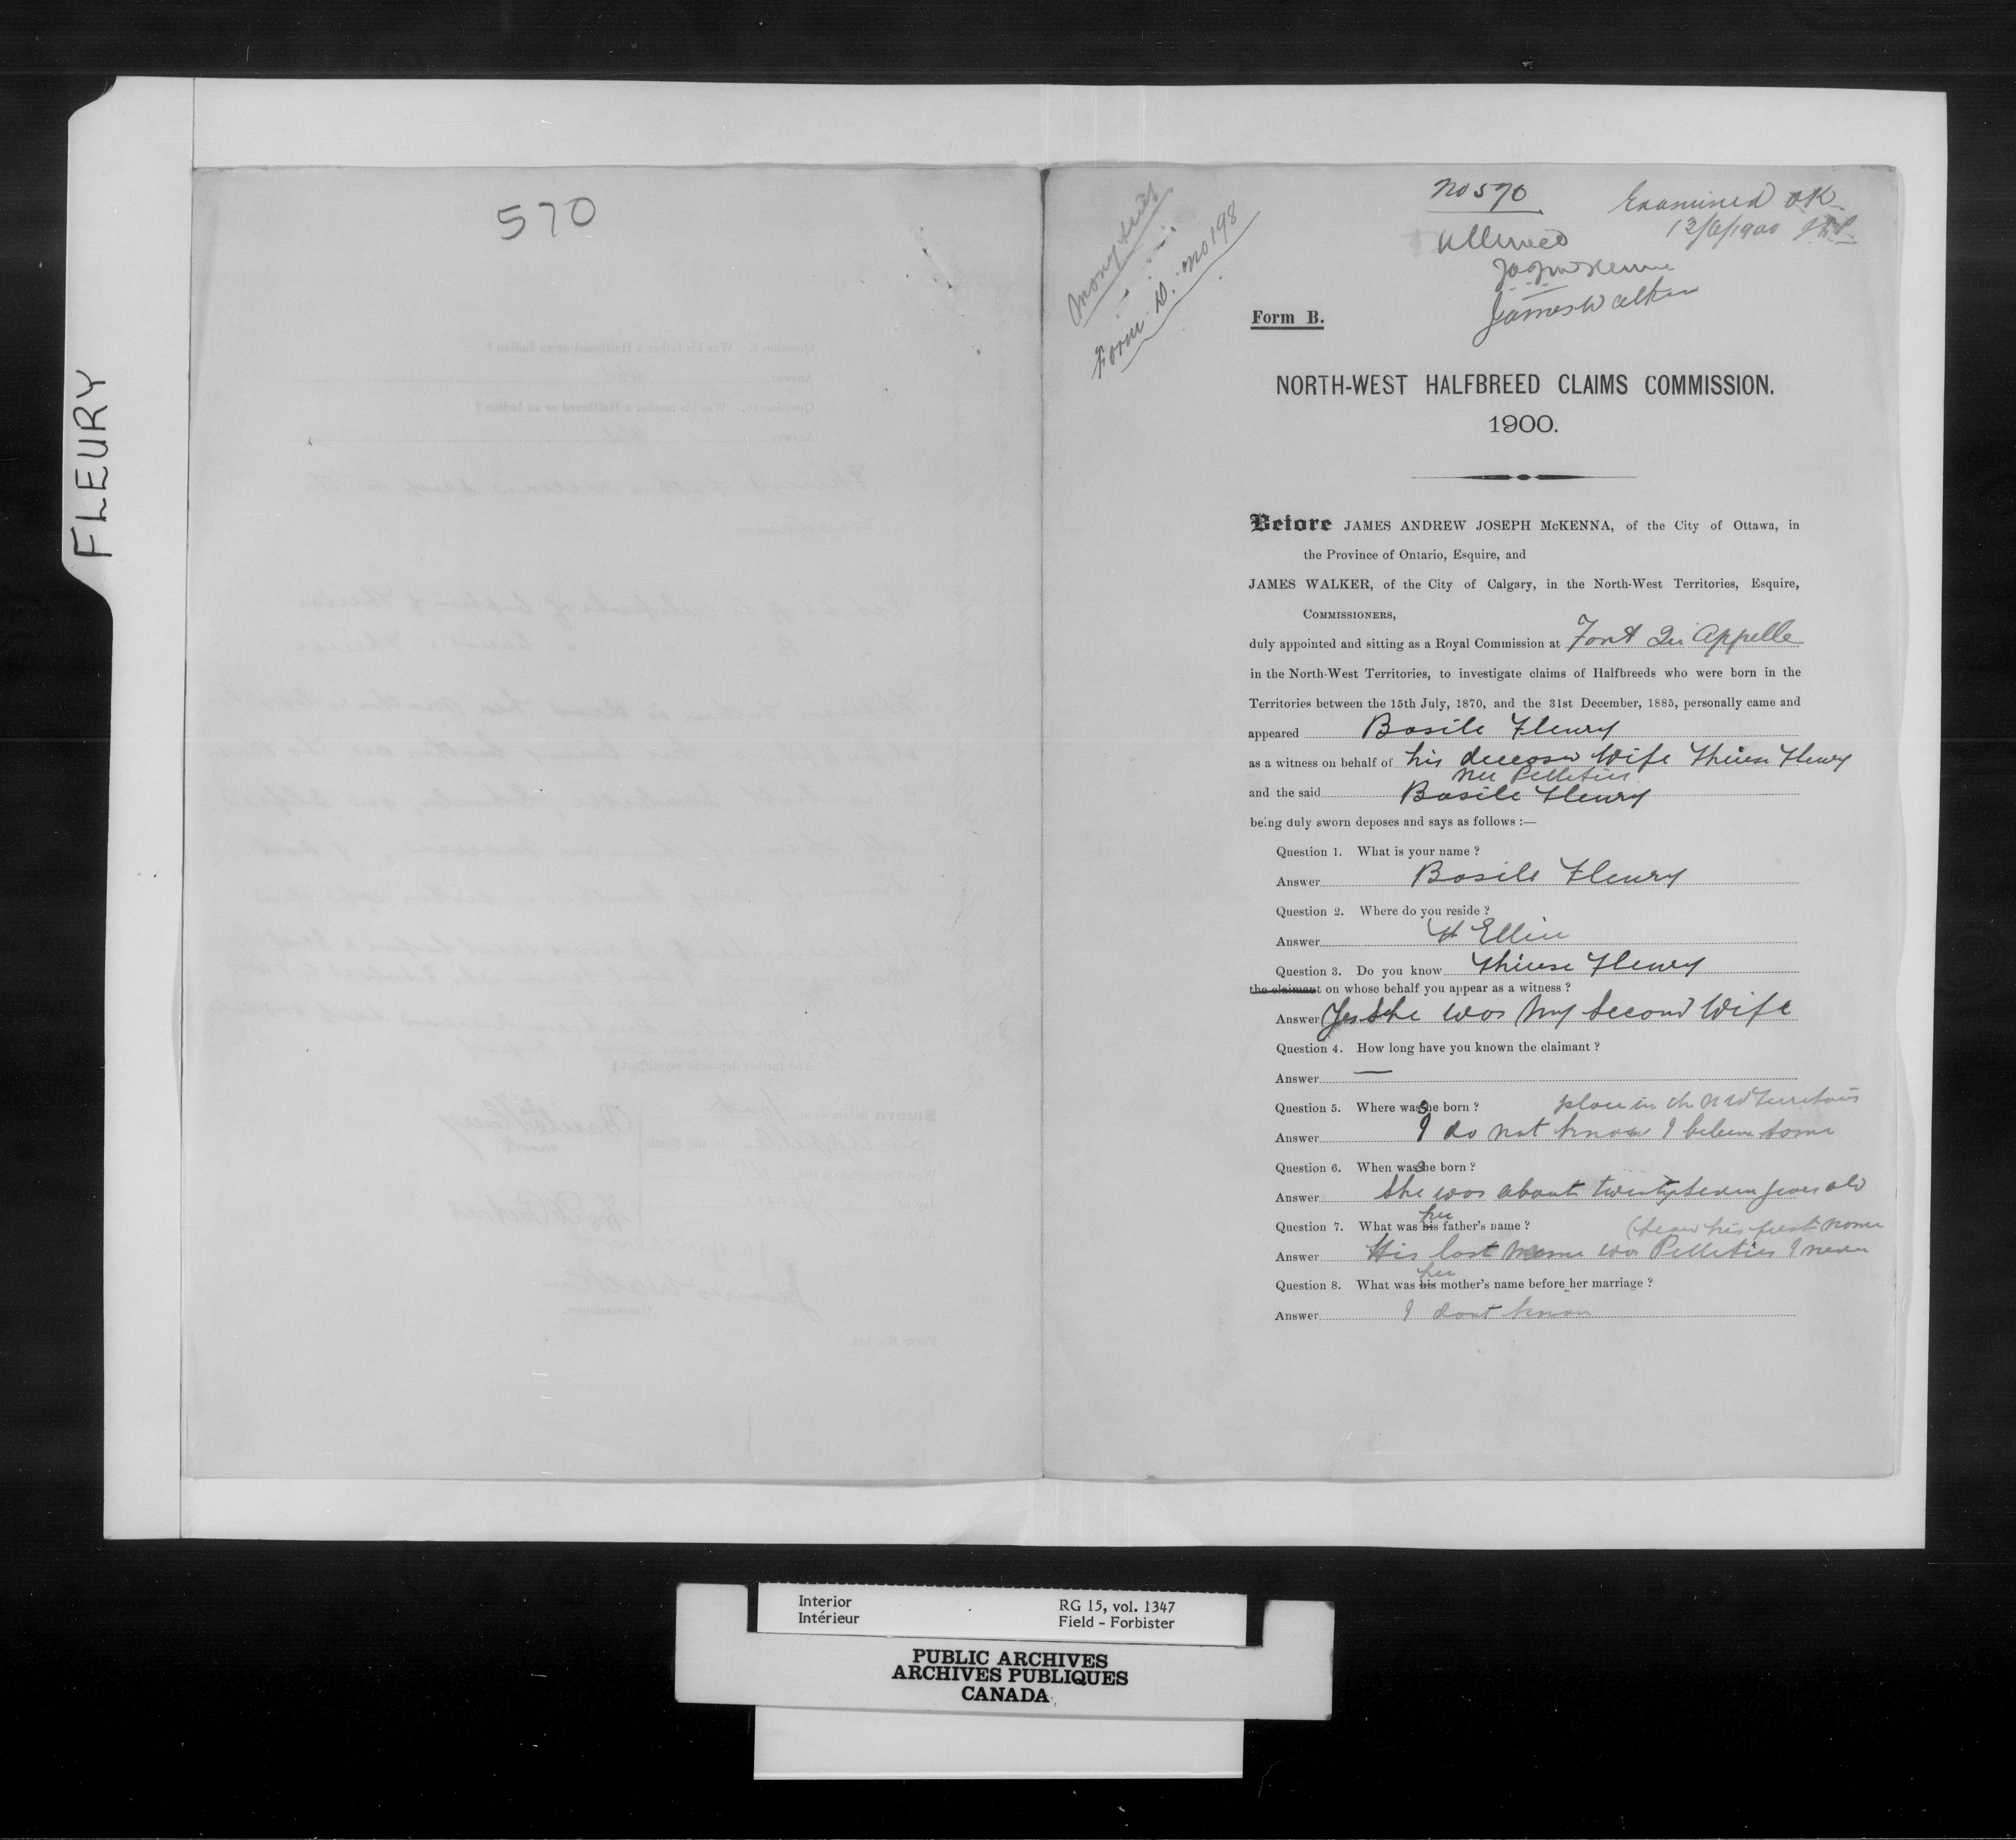 FLEURY
570
No 570
Examined OK
12/6/1900
Allowed
James Walker
Money scrip
Form D. No 198
Form B.
NORTH-WEST HALFBREED CLAIMS COMMISSION.
1900.
Before JAMES ANDREW JOSEPH McKENNA, of the City of Ottawa, in
the Province of Ontario, Esquire, and
JAMES WALKER, of the City of Calgary, in the North-West Territories, Esquire,
COMMISSIONERS,
duly appointed and sitting as a Royal Commission at Fort Qu Appelle
in the North-West Territories, to investigate claims of Halfbreeds who were born in the
Territories between the 15th July, 1870, and the 31st December, 1885, personally came and
appeared Basile Fleury
as a witness on behalf of his deceased Wife Thérèse Fleury
nee Pelletier
and the said Basile Fleury
being duly sworn deposes and says as follows :—
Question 1. What is your name ?
Answer Basile Fleury
Question 2. Where do you reside ?
Answer Ft Ellice
Question 3. Do you know Thérèse Fleury
the claimant on whose behalf you appear as a witness ?
Answer Yes She was my second Wife
Question 4. How long have you known the claimant ?
Answer —
Question 5. Where was she born ? place in the NW Territories
Answer I do not know I believe some
Question 6. When was she born ?
Answer She was about twenty seven years old
Question 7. What was his her father's name ? (hear his first name
Answer His last name was Pelletier I never
Question 8. What was his her mother's name before her marriage ?
Answer I dont know
Interior
Intérieur
RG 15, vol. 1347
Field - Forbister
PUBLIC ARCHIVES
ARCHIVES PUBLIQUES
CANADA